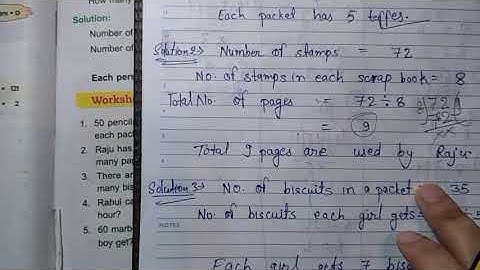 How many
Solution:
Number of
Number of
Each per
Worksh
1. 50 pencil
each pac
2. Raju has
many pa
3. There ar
many bis
4. Rahul ca
hour?
5. 60 marb
boy get?
Each packet has 5 toffes.
Solution 2→ Number of stamps = 72
No. of stamps in each scrap book = 8
Total No. of pages = 72 ÷ 8
= 9
Total 9 pages are used by Raju.
Solution 3→ No. of biscuits in a packet 35
No. of biscuits each girl gets =
NOTES
Each girl gets 7 bisc